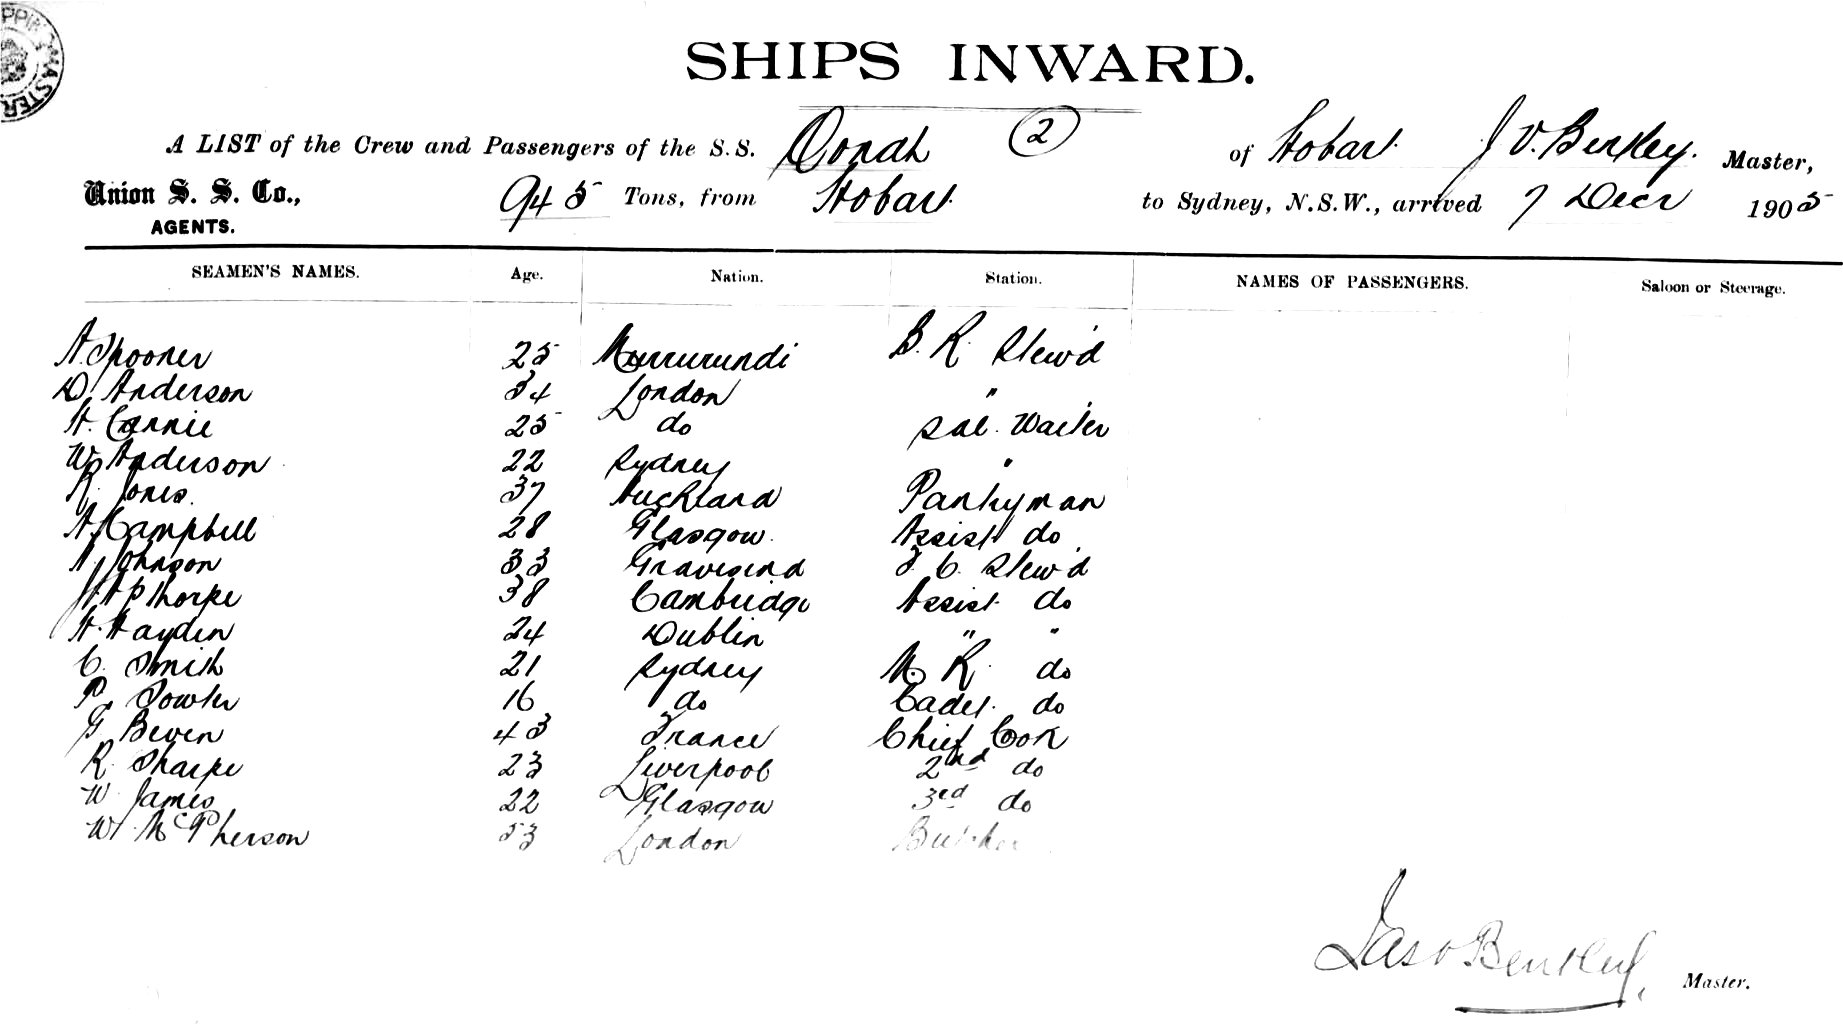 SHIPPING MASTER
SHIPS INWARD.
A LIST of the Crew and Passengers of the S.S. Oonah (2) of Hobart J V. Bentley. Master,
Union S. S. Co., 945 Tons, from Hobart to Sydney, N.S.W., arrived 7 Decr 1905
AGENTS.
SEAMEN'S NAMES. Age. Nation. Station. NAMES OF PASSENGERS. Saloon or Steerage.
A Spooner 25 Murrurundi B. R. Stew'd
D. Anderson 34 London "
H. 25 do Sal. Waiter
W. Anderson 22 Sydney "
R. Jones. 37 Auckland Pantryman
A Campbell 28 Glasgow. Assist do
A Johnson 33 Gravesend F. C. Stew'd
Thorpe 38 Cambridge Assist. do
H. Hayden 24 Dublin " "
C. Smith 21 Sydney M. R. do
P. Fowler 16 do Cadet. do
G Beven 43 France Chief Cook
R. Sharpe 23 Liverpool 2nd do
W. James 22 Glasgow 3rd do
W. McPherson 53 London Butcher
Jas V Bentley. Master.